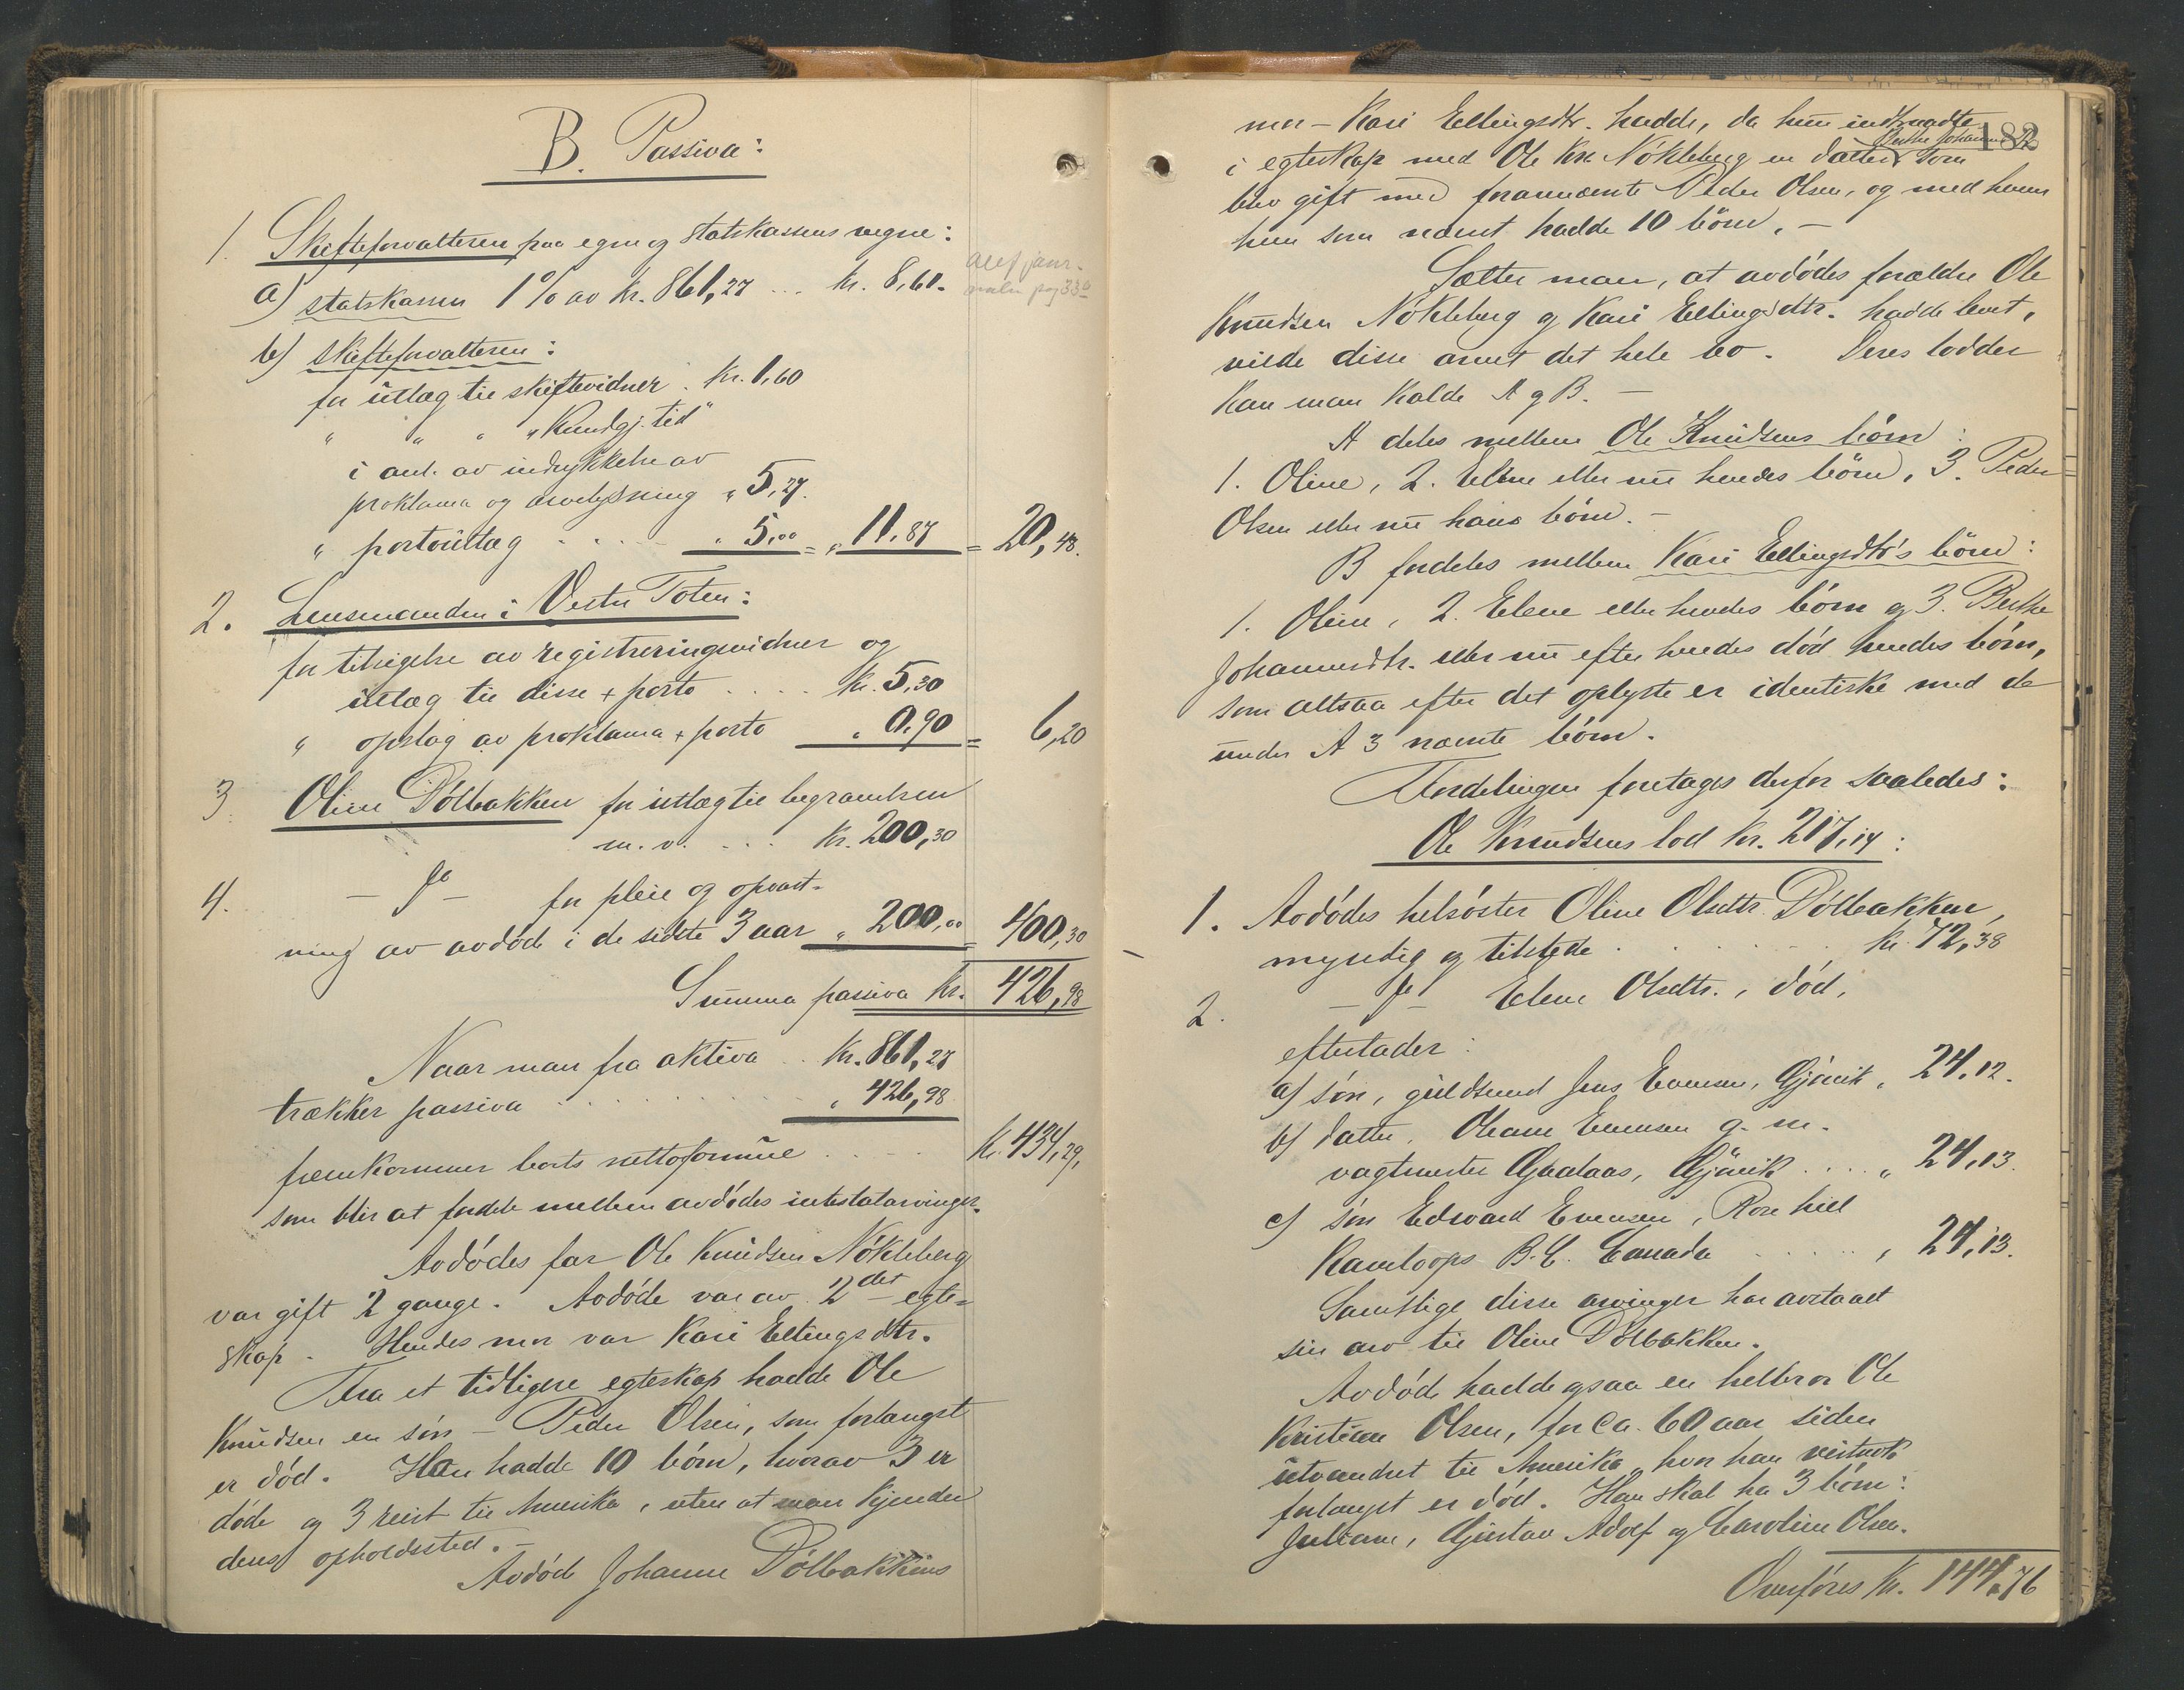 B. Passiva:
1. Skifteforvalteren paa egne og statskassens vegne:
a) statskassen 1% av kr. 861,27 ... kr. 8,61.
b) skifteforvalteren:
for utlæg til skiftevidner . kr. 1,60
" " " "Kundgj. tid"
i anl. av indrykkelse av
proklama og arvelysning " 5,27.
" portoutlæg . . . . " 5,00 = " 11.87 = 20,48.
2. Lensmanden i Vestre Toten:
for tilsigelse av registreringsvidner og
utlæg til disse + porto . . . . kr. 5,30
" opslag av proklama + porto " 0.90 = 6,20
3. Oline Dölbakken for utlæg til begravelsen
m. v. . . . kr. 200,30
4. - Do - for pleie og opvart-
ning av avdöde i de sidste 3 aar " 200,00 = 400,30
Summa passiva kr. 426,98
Naar man fra aktiva .. kr. 861,27
trækker passiva . . . . . . " 426,98
fremkommer boets nettoformue . . . . kr. 434,29,
som blir at fordele mellem avdödes intestatarvinger.
Avdödes far Ole Knudsen Nökleberg
var gift 2 gange. Avdöde var av 2det egte-
skap. Hendes mor var Kari Ellingsdtr.
Fra et tidligere egteskap hadde Ole
Knudsen en sön - Peder Olsen, som forlængst
er död. Han hadde 10 börn, hvorav 3 er
döde og 3 reist til Amerika, uten at man kjender
deres opholdssted. -
Avdöde Johanne Dölbakkens
182
mor - Kari Ellingsdtr. hadde, da hun indtraadte
i egteskap med Ole Kn. Nökleberg en datter Berthe Johannesdtr. som
blev gift med forannævnte Peder Olsen, og med hvem
hun som nævnt hadde 10 börn. -
Sætter man, at avdödes forældre Ole
Knudsen Nökleberg og Kari Ellingsdtr. hadde levet,
vilde disse arvet det hele bo. Deres lodder
kan man kalde A og B. -
A deles mellem Ole Knudsens börn:
1. Oline, 2. Elene eller nu hendes börn, 3. Peder
Olsen eller nu hans börn. -
B fordeles mellem Kari Ellingsdtr's börn:
1. Oline, 2. Elene eller hendes börn og 3. Berthe
Johannesdtr. eller nu efter hendes död hendes börn,
som altsaa efter det oplyste er identiske med de
under A 3 nævnte börn.
Fordelingen foretages derfor saaledes:
Ole Knudsens lod kr. 217,14:
1. Avdödes helsöster Oline Olsdtr. Dölbakken,
myndig og tilstede . . . . . . kr. 72,38
2. - Do - Elene Olsdtr., död,
efterlader:
a) sön, guldsmed Jens Evensen, Gjövik " 24,12.
b) datter, Oleane Evensen g. m.
vagtmester Gaalaas, Gjövik . . . . " 24,13.
c) sön Edvard Evensen, Rose hill
Kamloops B. C. Canada . . . . . . " 24,13.
Samtlige disse arvinger har avstaaet
sin arv til Oline Dölbakken.
Avdöde hadde ogsaa en helbror Ole
Kristian Olsen, for ca. 60 aar siden
utvandret til Amerika, hvor han vistnok
forlængst er död. Han skal ha 3 börn:
Juliane, Gustav Adolf og Caroline Olsen.
Overföres kr. 144,76